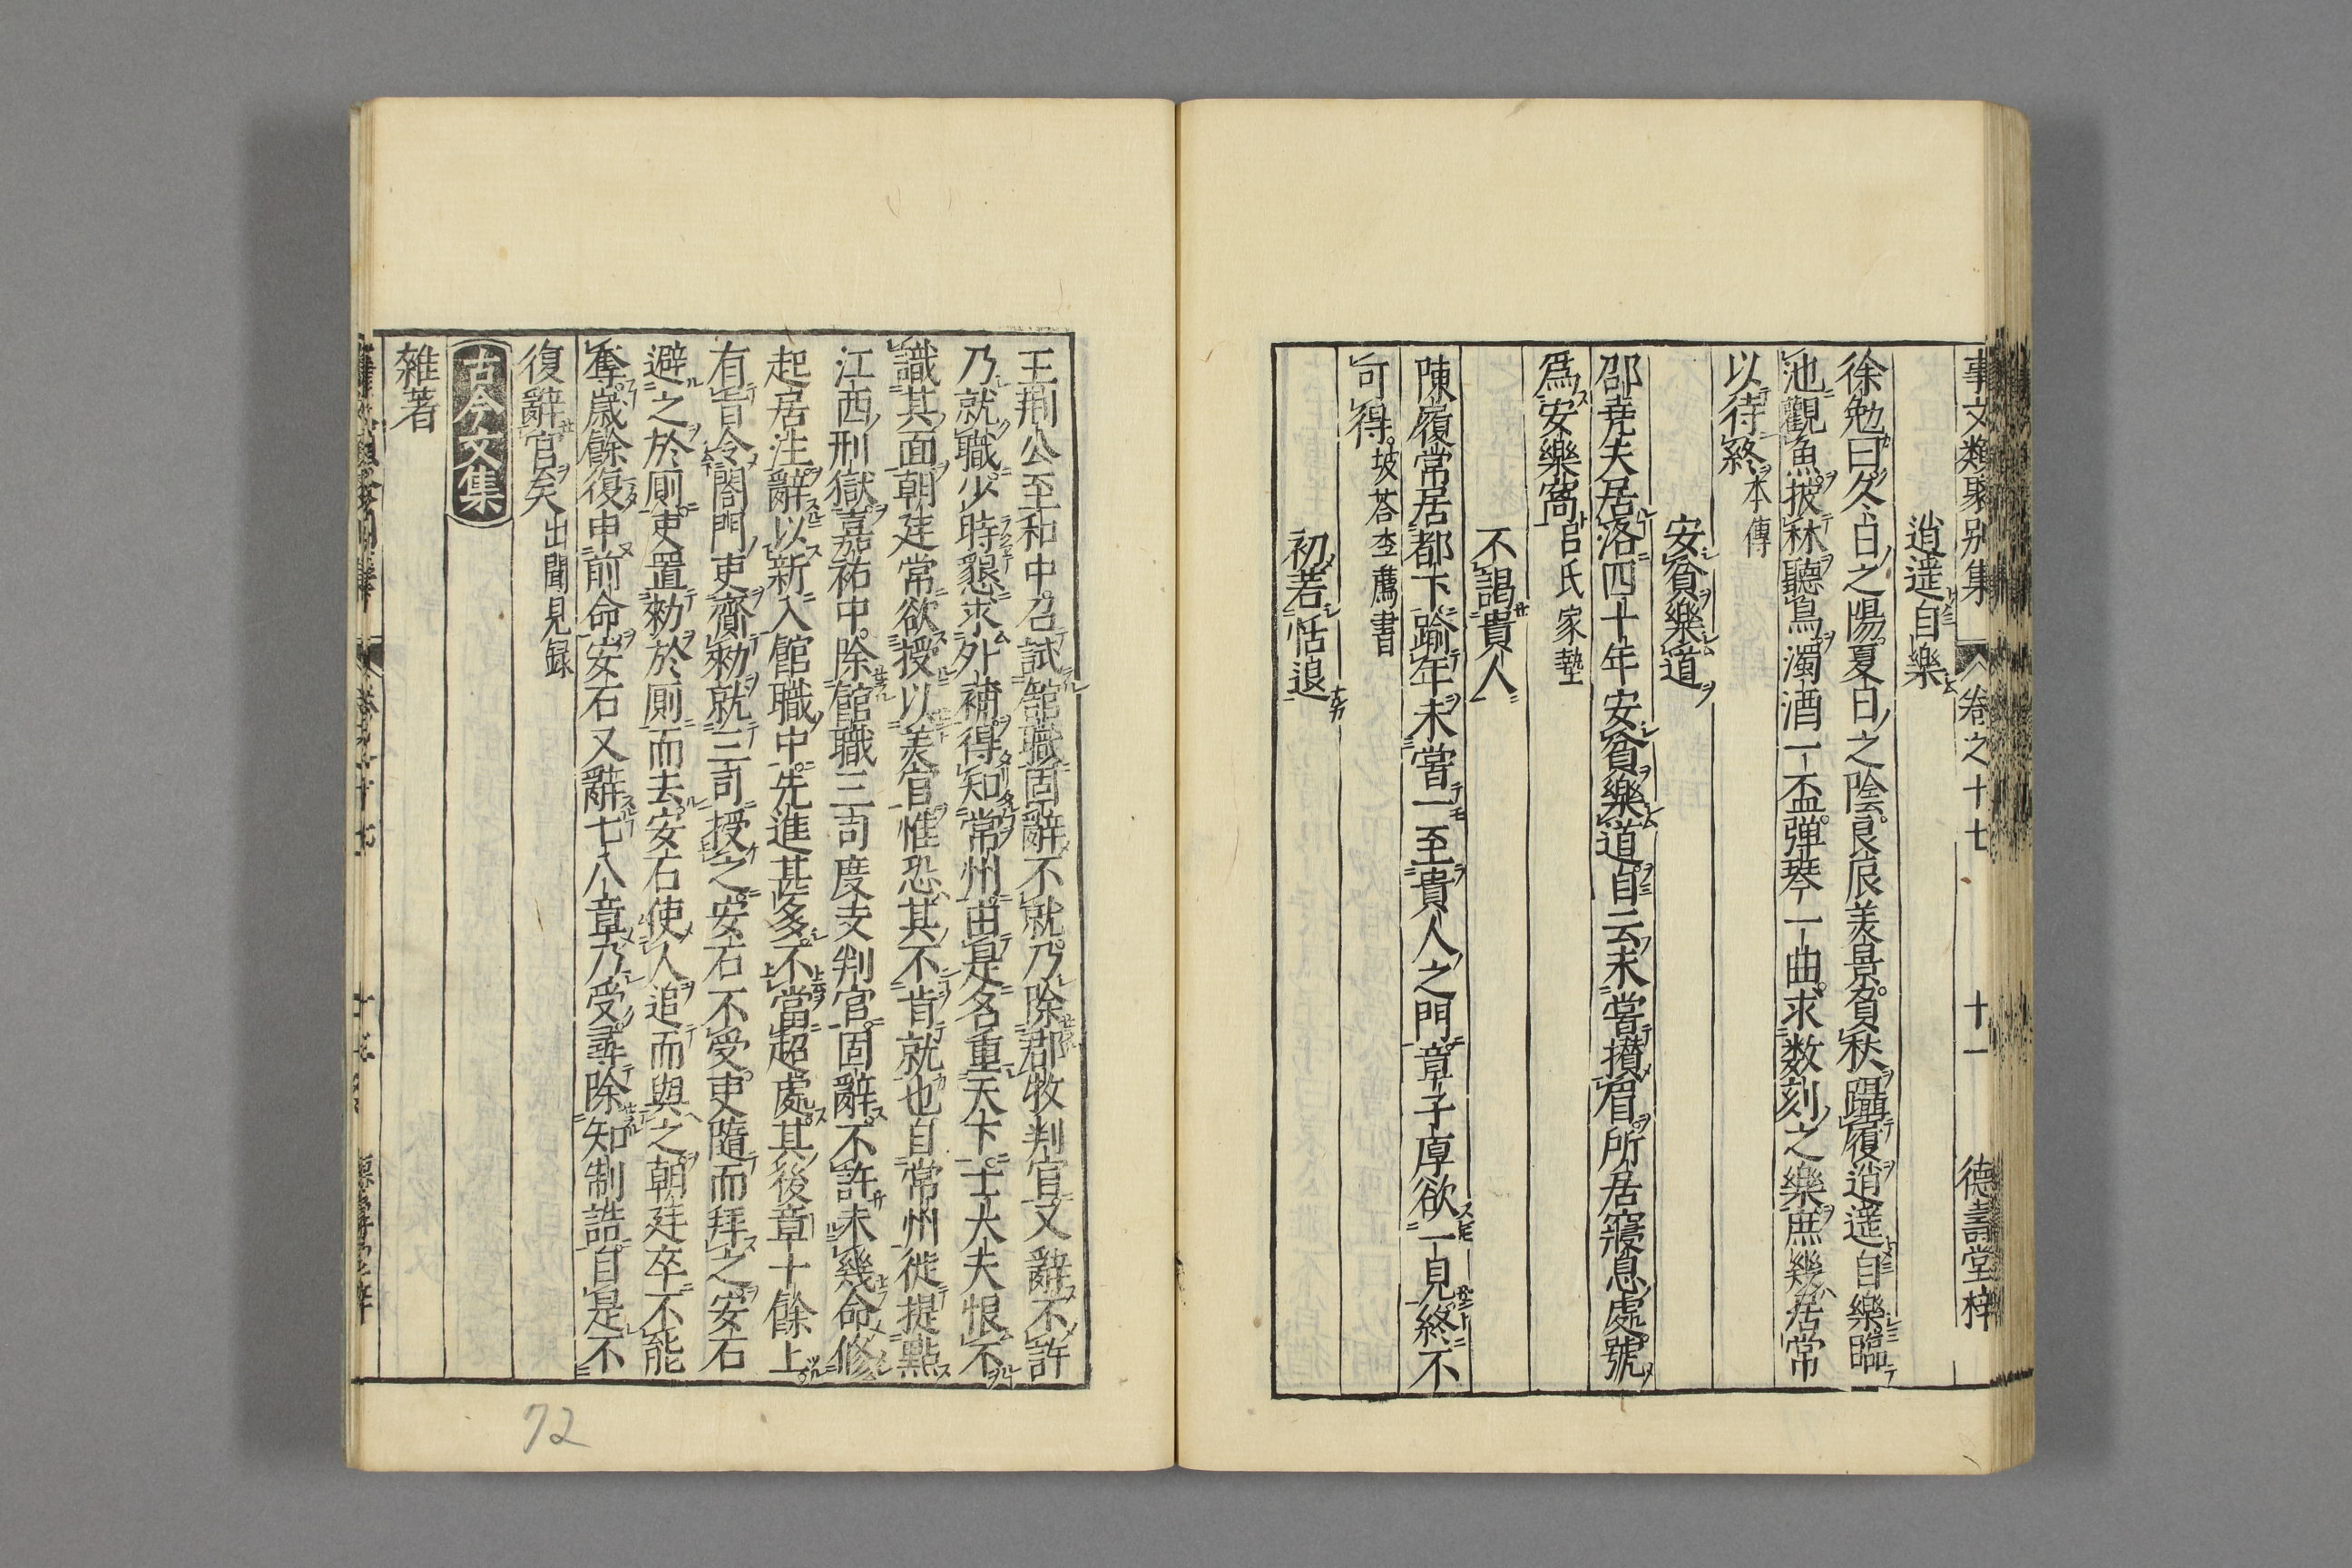 事文類聚別集 卷之十七 十一 德壽堂梓
逍遥自樂
徐勉曰冬日之陽夏日之陰良辰美景負杖躡履逍遥自樂臨
池觀魚披林聽鳥濁酒一盃彈琴一曲求数刻之樂庶幾居常
以待終本傳
安貧樂道
邵堯夫居洛四十年安貧樂道自云未嘗攅眉所居寢息處號
爲安樂窩呂氏家塾
不謁貴人
陳履常居都下踰年未嘗一至貴人之門章子厚欲一見終不
可得坡荅李薦書
初若恬退
王荆公至和中召試舘職固辭不就乃除郡牧判官又辭不許
乃就職少時懇求外補得知常州由是名重天下士大夫恨不
識其面朝廷常欲授以美官惟恐其不肯就也自常州徙提點
江西刑獄嘉祐中除館職三司度支判官固辭不許未幾命修
起居注辭以新入館職中先進甚多不當超處其後章十餘上
有旨令閤門吏齎勑就三司授之安石不受吏隨而拜之安石
避之於厠吏置勑於厠而去安石使人追而與之朝廷卒不能
奪歳餘復申前命安石又辭七八章乃受尋除知制誥自是不
復辭官矣出聞見録
古今文集
雑著
72